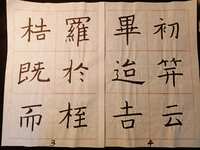 初笄云
畢迨吉
羅於桎
梏既而
4
3